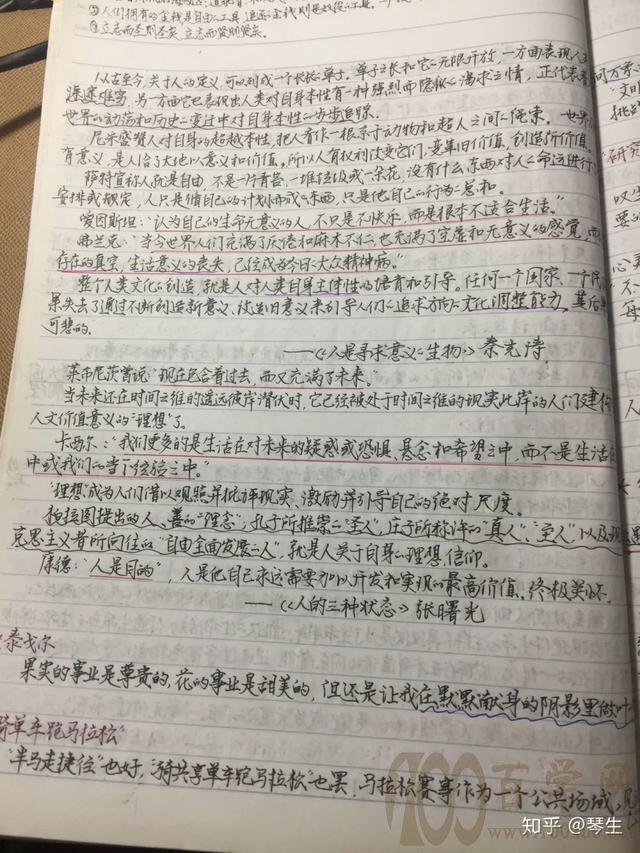 ②人们拥有的金钱是自由的工具 追逐金钱则是奴役的工具。
④立志而圣则圣矣 立志而贤则贤矣。
从古至今，关于人的定义，可以列成一个长长的单子。单子之长和它的无限开放，一方面表现人
难窥，另一方面它也表现出人类对自身本性有一种强烈而隐秘的渴求之情，正代表着
世界的动荡和历史的变迁中对自身本性的步步追踪。
尼采盛赞人对自身的超越本性，把人看作一根系于动物和超人之间的绳索。世界
有意义，是人给了大地以意义和价值。所以人有权利改变它们，变革旧价值，创造新价值。
萨特宣称人就是自由，不是一片青苔、一堆垃圾或一朵花，没有什么东西对人的命运进行
安排或规定，人只是借自己的计划而成的东西，只是他自己的行为的总和。
爱因斯坦："认为自己的生命无意义的人，不只是不快乐，而是根本不适合生活。"
弗兰克："当今世界人们充满了厌倦和麻木不仁，也充满了空虚和无意义的感觉，而
存在的真空，生活意义的丧失，已经成为今日的大众精神病。"
整个人类文化的创造，就是人对人类自身主体性的培育和引导。任何一个国家、一个民
果失去了通过不断创造新意义、改造旧意义来引导人们的追求方向的文化调整能力，其后果
可悲的。
——《人是寻求意义的生物》秦光涛
莱布尼茨曾说："现在包含着过去，而又充满了未来。"
当未来还在时间之维的遥远彼岸潜伏时，它已经被处于时间之维的现实此岸的人们建构
人文价值意义的"理想"了。
卡西尔："我们更多的是生活在对未来的疑惑或恐惧、悬念和希望之中，而不是生活在
中或我们的当下经验之中。"
"理想"成为人们借以观照并批评现实、激励并引导自己的绝对尺度。
柏拉图提出的人、善的"理念"，孔子所推崇的"圣人"，庄子所称许的"真人"、"至人"，以及
克思主义者所向往的"自由全面发展的人"，就是人关于自身的理想、信仰。
康德："人是目的"，人是他自己永远需要加以开发和实现的最高价值、终极关怀。
——《人的三种状态》张曙光
泰戈尔
果实的事业是尊贵的，花的事业是甜美的，但还是让我在默默献身的阴影里做叶
骑单车跑马拉松"
"半马走捷径"也好，"骑共享单车跑马拉松"也罢，马拉松赛事作为一个公共场域，
百学网
知乎 @琴生